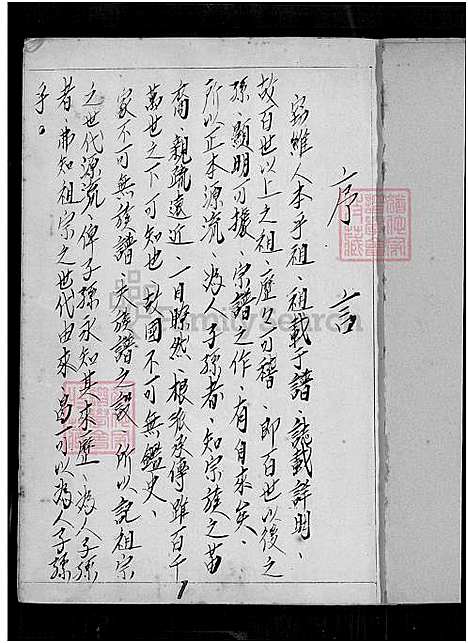 序言
竊維人本乎祖、祖載于譜、誌載詳明、
故百世以上之祖、歷歷可稽、即百世以後之
孫、顯明可據、宗譜之作、有自來矣、
所以正本源流、為人子孫者、知宗族之苗
裔、親疏遠近、一目瞭然、根派承傳雖百千
萬世之下可知也、故國不可無鑑史、
家不可無族譜、夫族譜之設、所以記祖宗
之世代源流、俾子孫永知其來歷、為人子孫
者、弗知祖宗之世代由來、曷可以為人子孫
乎。
FamilySearch